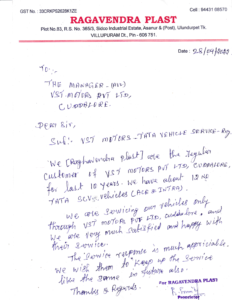 GST No : 33CRKPS2639K1ZE
Cell : 94431 08570
RAGAVENDRA PLAST
Plot No.83, R.S. No. 369/3, Sidco Industrial Estate, Asanur & (Post), Ulundurpet Tk.
VILLUPURAM Dt., Pin - 606 751.
Date : 25/04/
To:,
THE MANAGER -
VST MOTORS PVT LTD,
CUDDALORE.
Dear Sir,
Sub:- VST MOTORS - TATA VEHICLE SERVICE - Reg
We [Raghavendra Plast] are the regular
customer of VST MOTORS PVT LTD, CUDDALORE,
for last 10 years. We have about 12 no
TATA SCV vehicles (ACE & INTRA).
We are servicing our vehicles only
through VST MOTORS PVT LTD, Cuddalore, and
we are very much satisfied and happy with
their service.
The service response is much appreciable.
We wish them to keep up the service
like the same in future also.
Thanks & Regards.
For RAGAVENDRA PLAST
Proprietor